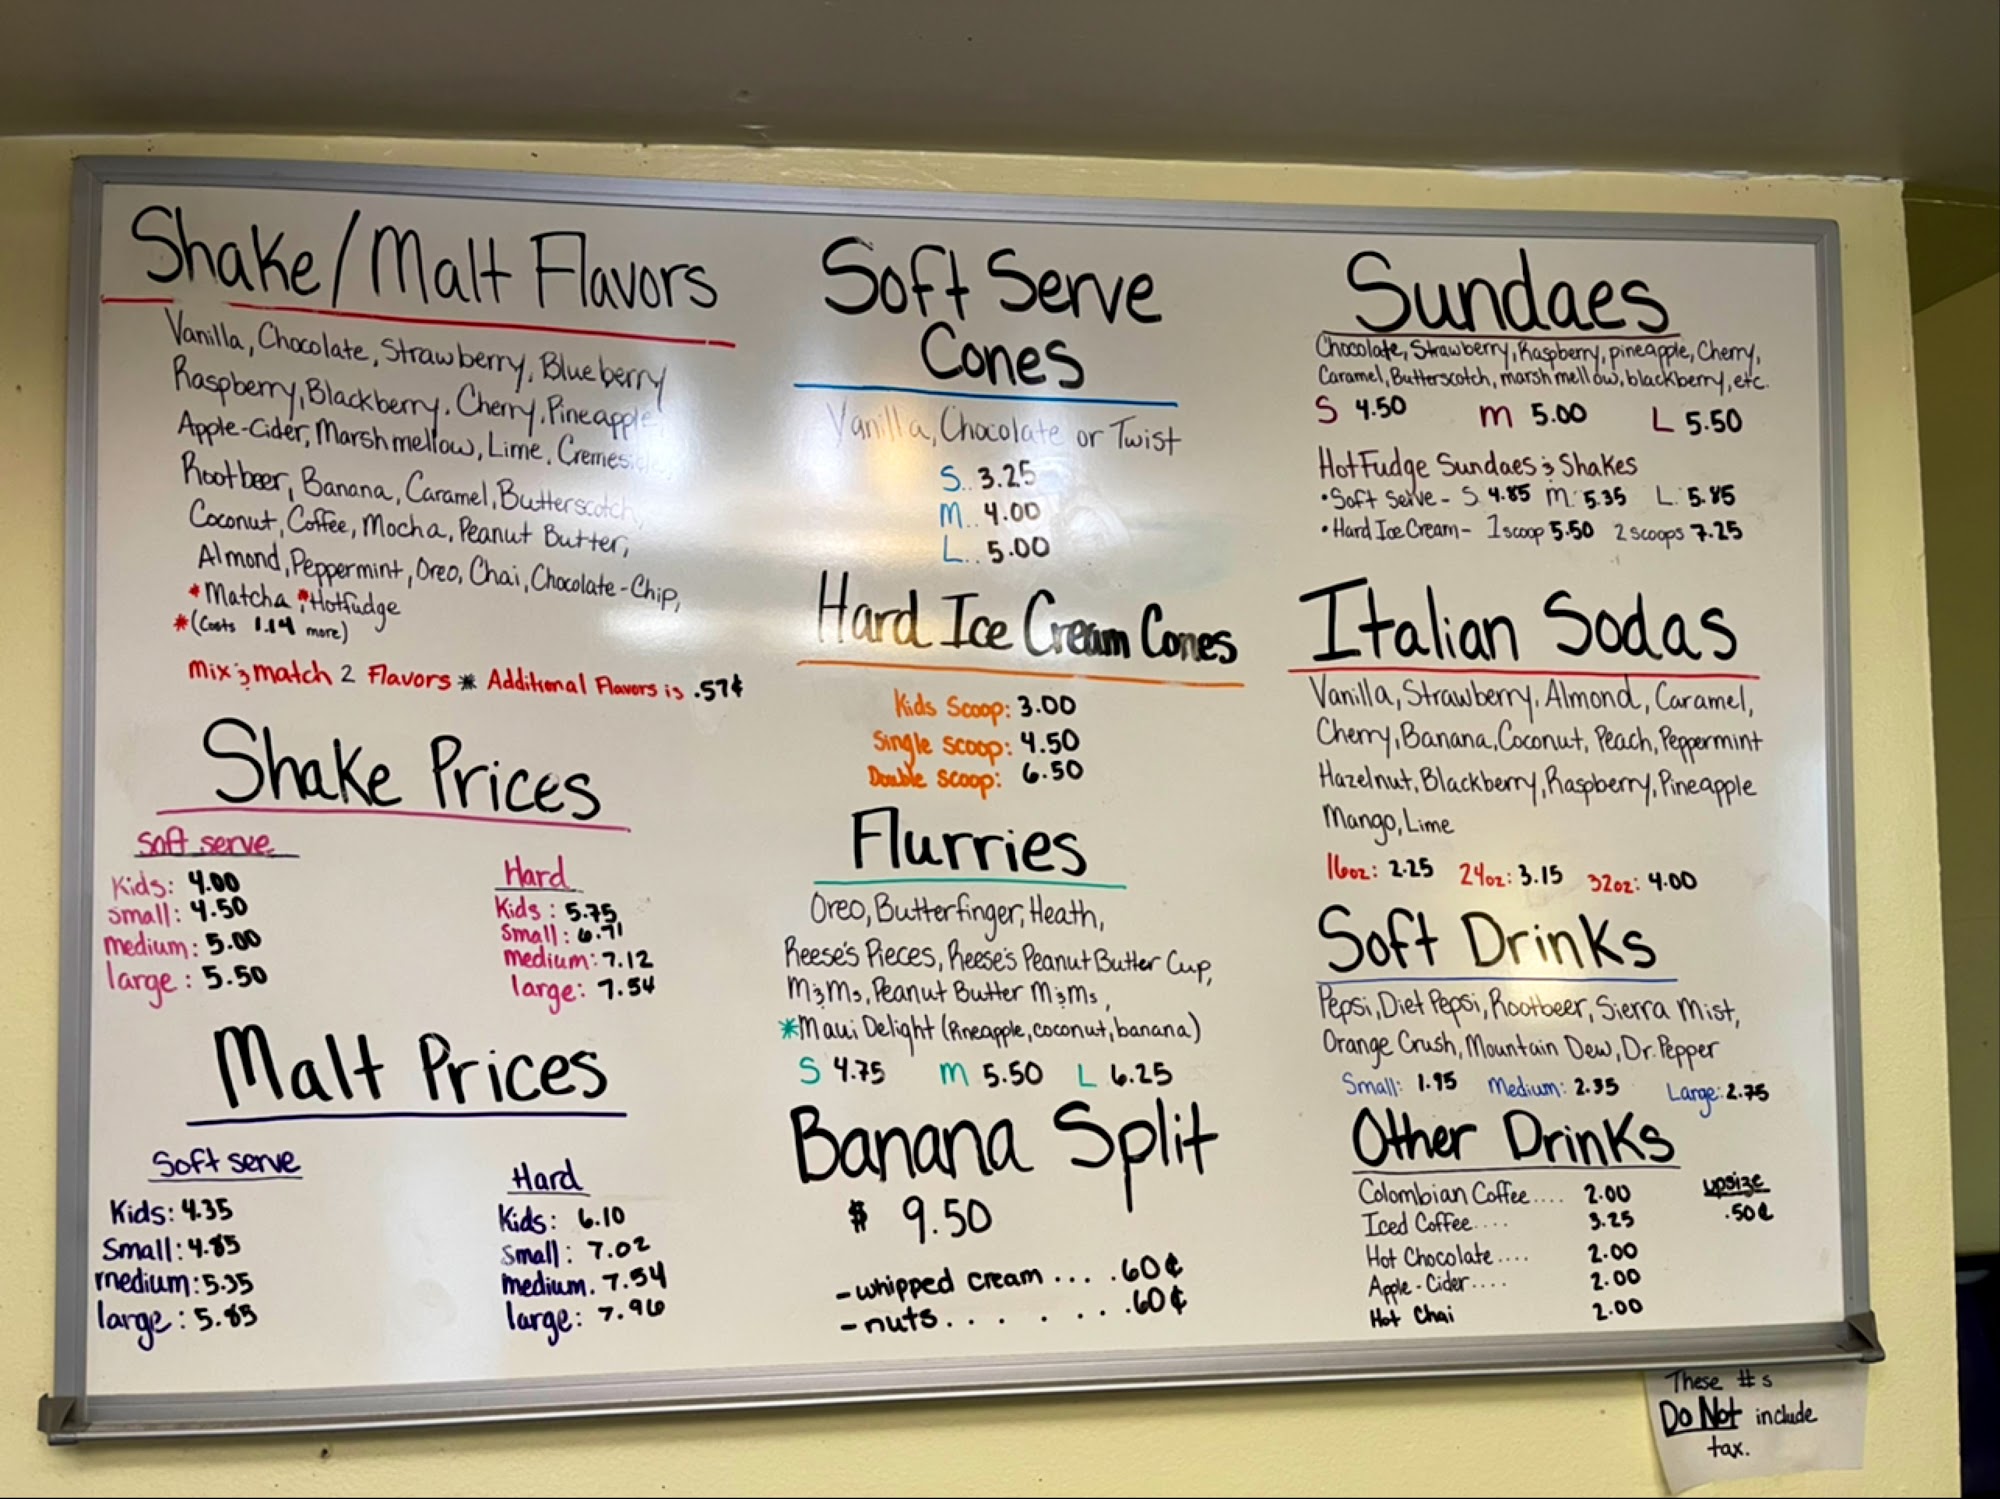 Shake/Malt Flavors
Vanilla, Chocolate, Strawberry, Blueberry
Raspberry, Blackberry, Cherry, Pineapple,
Apple-Cider, Marshmellow, Lime, Cremesicle
Rootbeer, Banana, Caramel, Butterscotch,
Coconut, Coffee, Mocha, Peanut Butter,
Almond, Peppermint, Oreo, Chai, Chocolate-Chip,
*Matcha *Hotfudge
*(Costs 1.14 more)
Mix & match 2 Flavors * Additional Flavors is .57¢
Shake Prices
Soft serve
Kids: 4.00
small: 4.50
medium: 5.00
large: 5.50
Hard
Kids: 5.75
small: 6.71
medium: 7.12
large: 7.54
Malt Prices
Soft serve
Kids: 4.35
Small: 4.85
medium: 5.35
large: 5.85
Hard
Kids: 6.10
small: 7.02
medium. 7.54
large: 7.96
Soft Serve
Cones
Vanilla, Chocolate or Twist
S.. 3.25
M.. 4.00
L... 5.00
Hard Ice Cream Cones
Kids Scoop: 3.00
Single scoop: 4.50
Double scoop: 6.50
Flurries
Oreo, Butterfinger, Heath,
Reese's Pieces, Reese's Peanut Butter Cup,
M&Ms, Peanut Butter M&Ms,
*Maui Delight (Pineapple, coconut, banana)
S 4.75 M 5.50 L 6.25
Banana Split
$ 9.50
-whipped cream ... .60¢
-nuts. . . . . . .60¢
Sundaes
Chocolate, Strawberry, Raspberry, pineapple, Cherry,
Caramel, Butterscotch, marshmellow, blackberry, etc.
S 4.50 M 5.00 L 5.50
Hot Fudge Sundaes & Shakes
•Soft Serve- S 4.85 M: 5.35 L: 5.85
•Hard Ice Cream- 1 scoop 5.50 2 scoops 7.25
Italian Sodas
Vanilla, Strawberry, Almond, Caramel,
Cherry, Banana, Coconut, Peach, Peppermint
Hazelnut, Blackberry, Raspberry, Pineapple
Mango, Lime
16oz: 2.25 24oz: 3.15 32oz: 4.00
Soft Drinks
Pepsi, Diet Pepsi, Rootbeer, Sierra Mist,
Orange Crush, Mountain Dew, Dr. Pepper
Small: 1.95 Medium: 2.35 Large: 2.75
Other Drinks
Colombian Coffee.... 2.00
Iced Coffee.... 3.25
Hot Chocolate.... 2.00
Apple-Cider.... 2.00
Hot Chai 2.00
upsize
.50¢
These #s
Do Not include
tax.